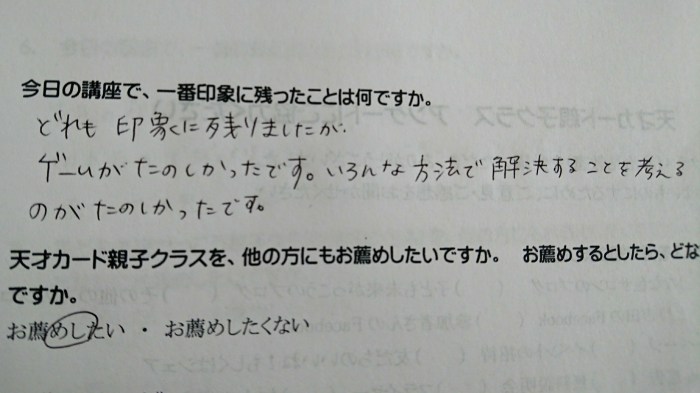 今日の講座で、一番印象に残ったことは何ですか。
どれも 印象に残りましたが、
ゲームがたのしかったです。いろんな方法で解決することを考える
のがたのしかったです。
天才カード親子クラスを、他の方にもお薦めしたいですか。 お薦めするとしたら、どな
ですか。
お薦めしたい ・ お薦めしたくない